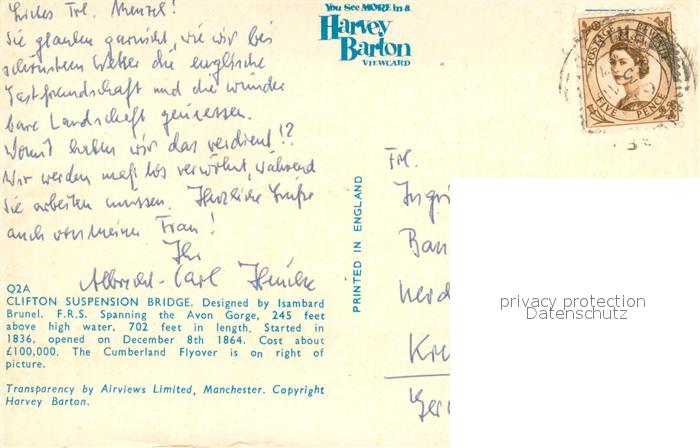 Liebes Frl. Menzel!
Sie glauben garnicht, wie wir bei
schönstem Wetter die englische
Gastfreundschaft und die wunder
bare Landschaft geniessen.
Womit haben wir das verdient!?
Wir werden maßlos verwöhnt, während
Sie arbeiten müssen. Herzliche Grüße
auch von meiner Frau!
Ihr
Albrecht-Carl
Q2A
CLIFTON SUSPENSION BRIDGE. Designed by Isambard
Brunel. F.R.S. Spanning the Avon Gorge, 245 feet
above high water, 702 feet in length. Started in
1836, opened on December 8th 1864. Cost about
£100,000. The Cumberland Flyover is on right of
picture.
Transparency by Airviews Limited, Manchester. Copyright
Harvey Barton.
You See MORE in a
Harvey
Barton
VIEWCARD
PRINTED IN ENGLAND
POSTAGE REVENUE
FIVE PENCE
Frl.
Ingri
Ban
Kre
Ger
privacy protection
Datenschutz